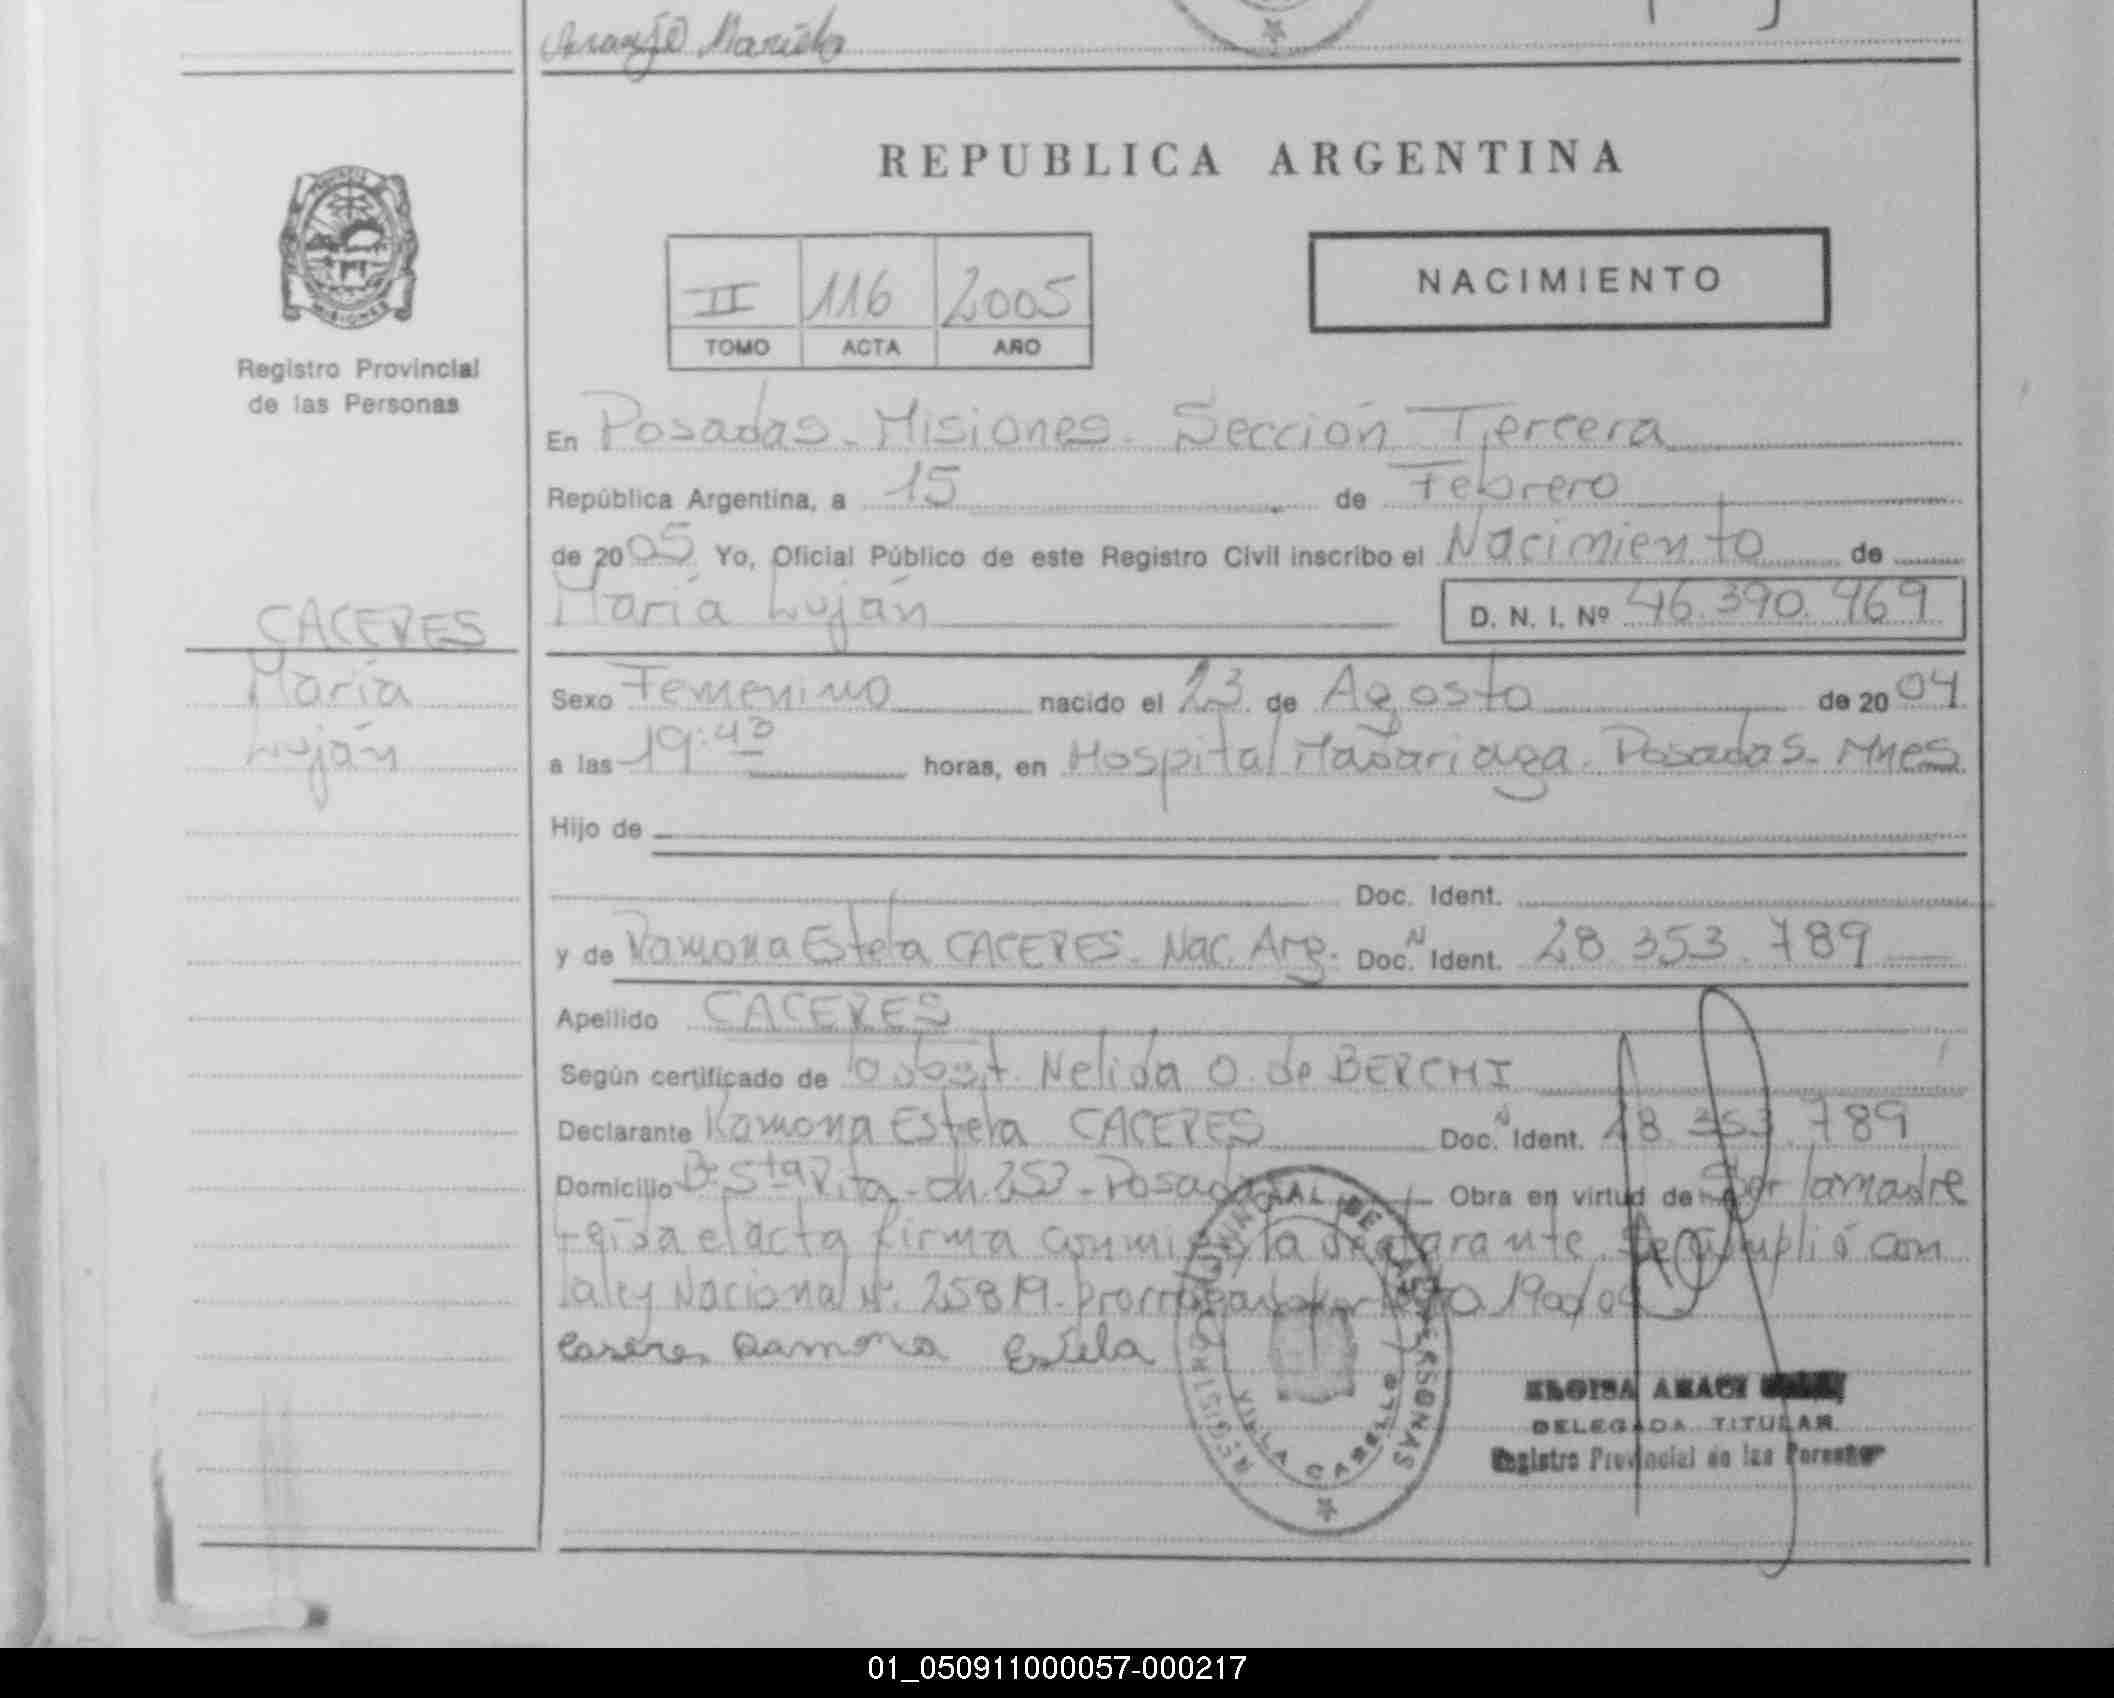 Mariela
REPUBLICA ARGENTINA
II 116 2005
TOMO ACTA AÑO
NACIMIENTO
Registro Provincial
de las Personas
En Posadas - Misiones. Sección Tercera
República Argentina, a 15 de Febrero
de 2005 Yo, Oficial Público de este Registro Civil inscribo el Nacimiento de
María Luján D. N. I. Nº 46.390.469
CACERES
María
Luján
Sexo Femenino nacido el 23 de Agosto de 2004
a las 19:43 horas, en Hospital Madariaga. Posadas - Mnes
Hijo de
Doc. Ident.
y de Ramona Estela CACERES. Nac. Arg. Doc. N Ident. 28.353.789
Apellido CACERES
Según certificado de Obst. Nelida O. de BERCHI
Declarante Ramona Estela CACERES Doc. N Ident. 28.353.789
Domicilio Bº Sta Rita - ch. 252 - Posadas Obra en virtud de ser la madre
Leída el acta firma conmigo la declarante. Se cumplió con
la ley Nacional Nº. 25819. prorrogado por 1900/04
Caseres Ramona Estela
REGISTRO PROVINCIAL DE LAS PERSONAS
VILLA CABELLO
ELOISA
DELEGADA TITULAR
Registro Provincial de las Personas
01_050911000057-000217